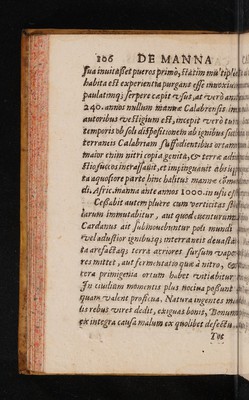 106 DE MANNA
sua inuitasset pueros primò, statim mu'tipli
habita est experientia purgans esse innoxium
paulatimq; serpere cœpit vsus, at verò ante
240. annos nullum mannæ Calabrensis in
autoribus vestigium est, incepit verò tum
temporis ob soli dispositionem ab ignibus sub
terraneis Calabriam suffodientibus ortam
maior enim nitri copia genita, & terræ adus
tio succos incrassauit, et impinguauit absq;
ta aquosiore parte hinc halitus mannæ
di. Afric. manna ante annos 1000. in vsu est
Cessabit autem pluere cum verticitas
larum immutabitur, aut quod euenturum
Cardanus ait submouebuntur poli mundi
vel adustior ignibusq; interraneis deuasta
ta arefactaq; terra acriores sursum vapo
res mittet, aut fermentatio quæ à nitro, &
tera primigenia ortum habet vitiabitur
In ciuilium momentis plus nociua possunt
quam valent proficua. Natura ingentes ma
lis rebus vires dedit, exiguas bonis, Bonum
ex integra causa malum ex quolibet defectu
Tot